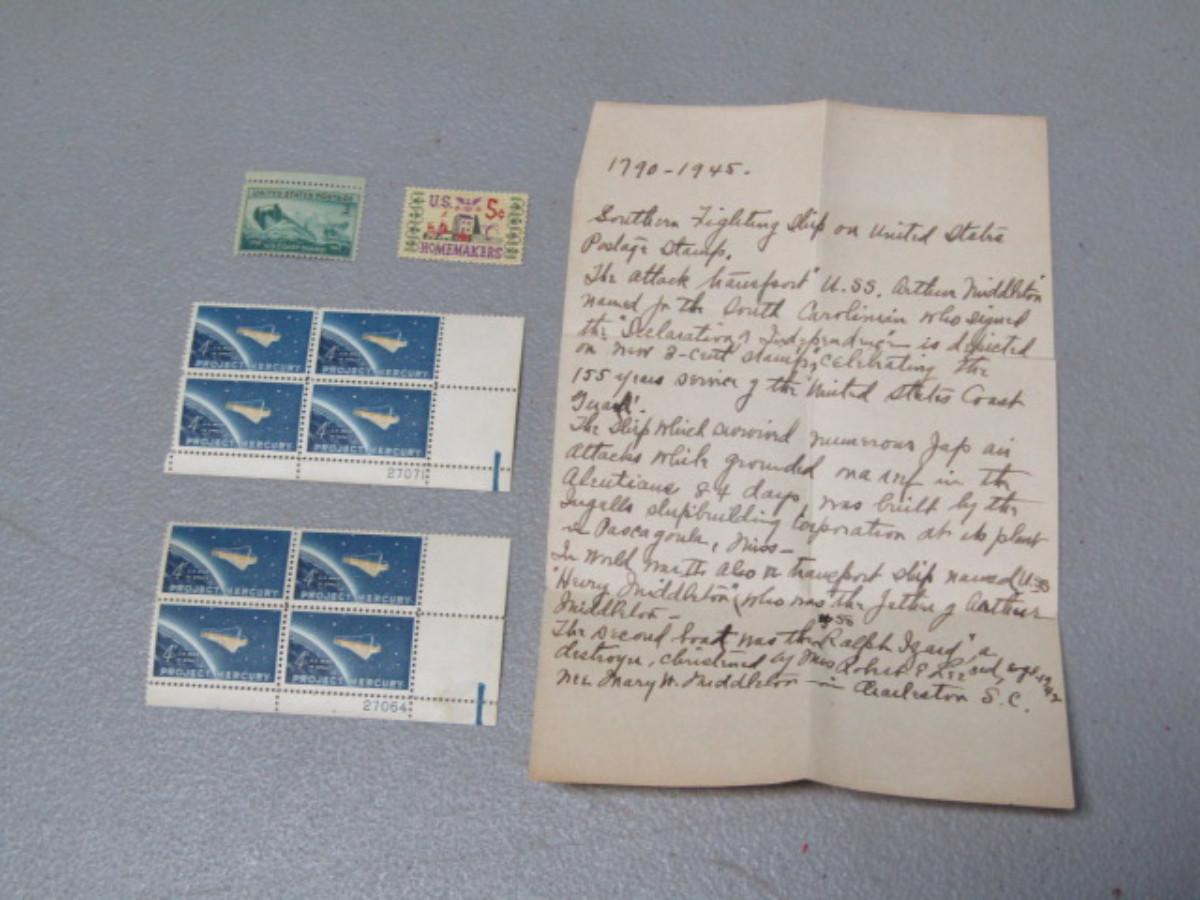 UNITED STATES POSTAGE
3¢
U.S. COAST GUARD
U.S. 5¢
HOMEMAKERS
PROJECT MERCURY
PROJECT MERCURY
PROJECT MERCURY
PROJECT MERCURY
27071
PROJECT MERCURY
PROJECT MERCURY
PROJECT MERCURY
PROJECT MERCURY
27064
1790-1945.
Southern Fighting Ship on United States
Postage Stamp.
The attack transport "U.SS. Arthur Middleton"
named for the South Carolinian who signed
the "Declaration of Independence" is depicted
on new 3-cent stamps, "celebrating the
155 years service of the United States Coast
Guard".
The Ship which survived numerous Jap air
attacks while grounded on a reef in the
Aleutians 84 days was built by the
Ingalls shipbuilding Corporation at its plant
in Pascagoula, Miss-
In World War II also a transport ship named U.SS
"Henry Middleton" who was the father of Arthur
Middleton-
The second boat was the USS "Ralph Izard" a
destroyer, christened by Mrs Robert E Lee 3rd, 1942
nee Mary M. Middleton - in Charleston S.C.